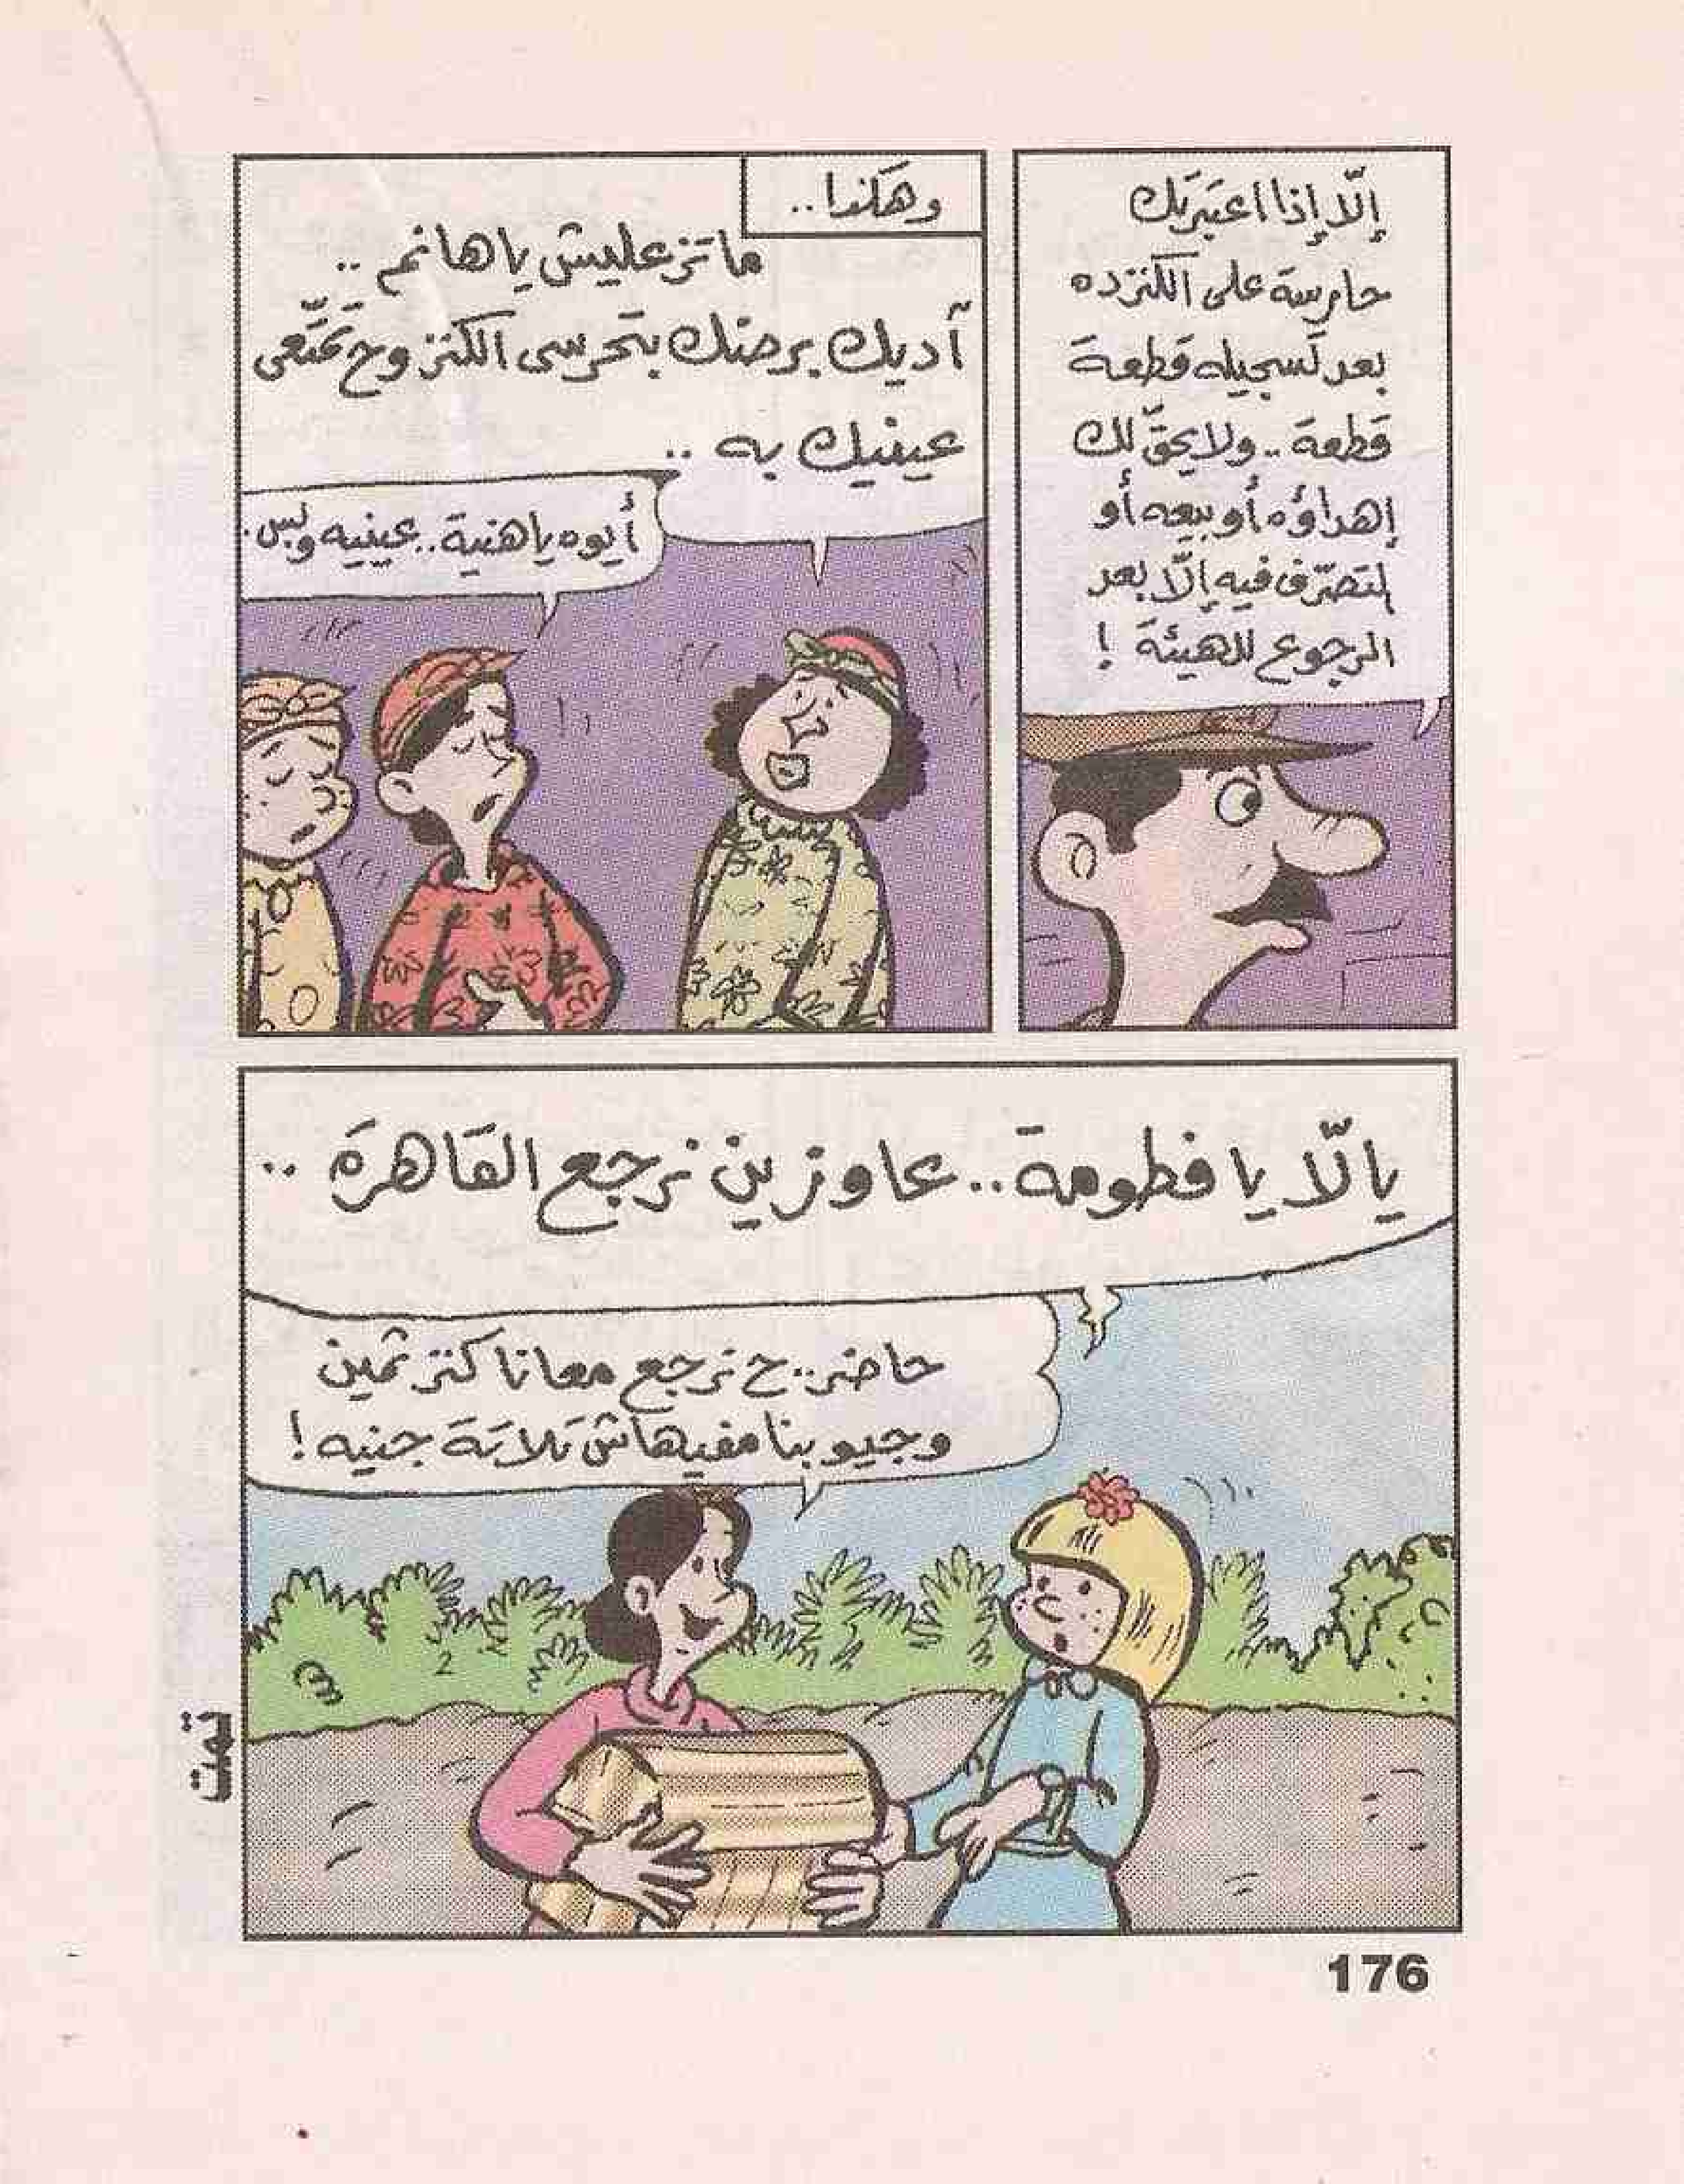 إلّا إذا اعتبَرتِك
حارسة على الكنز ده
بعد تسجيله قطعة
قطعة .. ولا يحقّ لك
إهداؤه أو بيعه أو
التصرّف فيه إلّا بعد
الرجوع للهيئة !
وهَكذا ..
ما تزعليش يا هانم ..
آديك برضك بتحرسى الكنز وح تمَتّعى
عينيك به ..
أيوه يا هنية .. عينيه وبس .
يالّا يا فطومة .. عاوزين نرجع القاهرة ..
حاضر .. ح نرجع معانا كنز ثمين
وجيوبنا مفيهاش تلاتة جنيه !
تمت
176